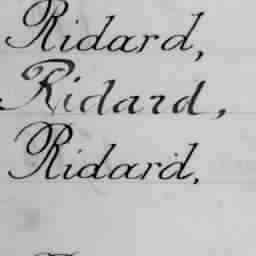 Ridard,
Ridard,
Ridard,